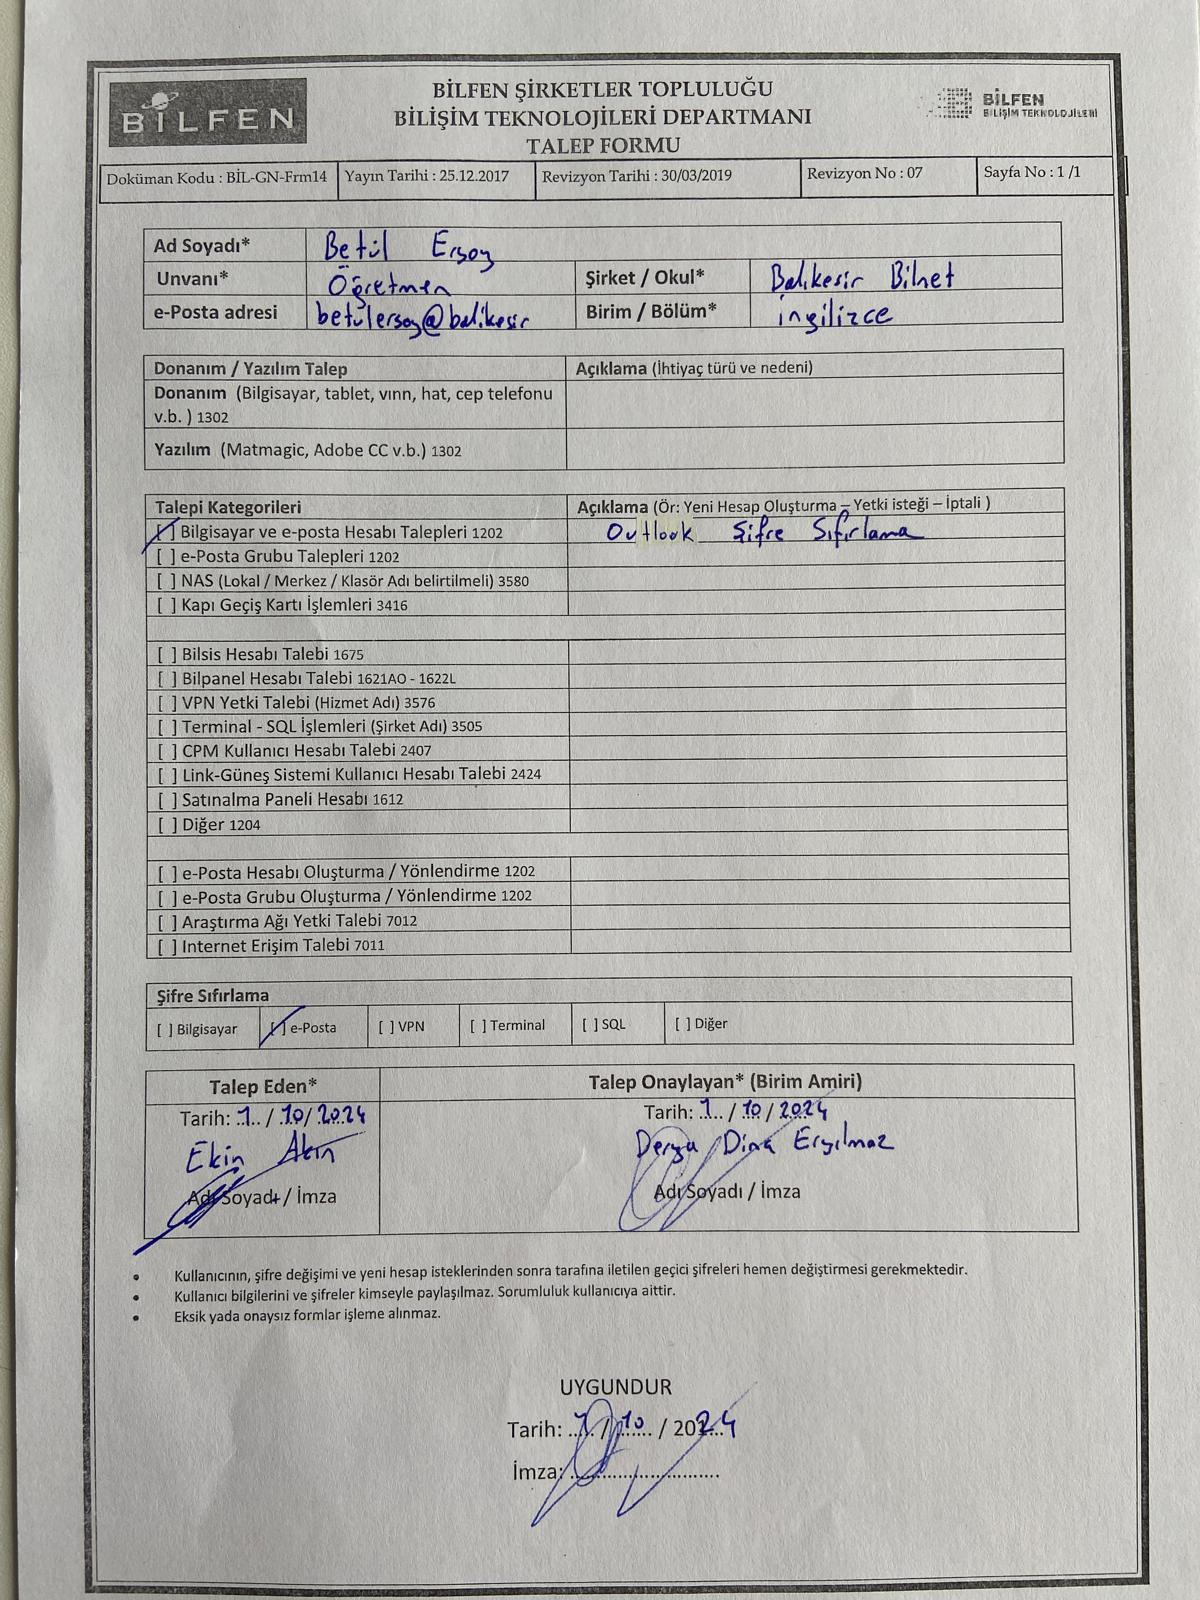 BİLFEN
BİLFEN ŞİRKETLER TOPLULUĞU
BİLİŞİM TEKNOLOJİLERİ DEPARTMANI
TALEP FORMU
BİLFEN
BİLİŞİM TEKNOLOJİLERİ
Doküman Kodu : BİL-GN-Frm14 Yayın Tarihi : 25.12.2017 Revizyon Tarihi : 30/03/2019 Revizyon No : 07 Sayfa No : 1 /1
Ad Soyadı* Betül Ersoy
Unvanı* Öğretmen Şirket / Okul* Balıkesir Bilnet
e-Posta adresi betulersoy@balikesir Birim / Bölüm* ingilizce
Donanım / Yazılım Talep Açıklama (İhtiyaç türü ve nedeni)
Donanım (Bilgisayar, tablet, vınn, hat, cep telefonu
v.b. ) 1302
Yazılım (Matmagic, Adobe CC v.b.) 1302
Talepi Kategorileri Açıklama (Ör: Yeni Hesap Oluşturma – Yetki isteği – İptali )
[ ] Bilgisayar ve e-posta Hesabı Talepleri 1202 Outlook Şifre Sıfırlama
[ ] e-Posta Grubu Talepleri 1202
[ ] NAS (Lokal / Merkez / Klasör Adı belirtilmeli) 3580
[ ] Kapı Geçiş Kartı İşlemleri 3416
[ ] Bilsis Hesabı Talebi 1675
[ ] Bilpanel Hesabı Talebi 1621AO - 1622L
[ ] VPN Yetki Talebi (Hizmet Adı) 3576
[ ] Terminal - SQL İşlemleri (Şirket Adı) 3505
[ ] CPM Kullanıcı Hesabı Talebi 2407
[ ] Link-Güneş Sistemi Kullanıcı Hesabı Talebi 2424
[ ] Satınalma Paneli Hesabı 1612
[ ] Diğer 1204
[ ] e-Posta Hesabı Oluşturma / Yönlendirme 1202
[ ] e-Posta Grubu Oluşturma / Yönlendirme 1202
[ ] Araştırma Ağı Yetki Talebi 7012
[ ] Internet Erişim Talebi 7011
Şifre Sıfırlama
[ ] Bilgisayar [ ] e-Posta [ ] VPN [ ] Terminal [ ] SQL [ ] Diğer
Talep Eden* Talep Onaylayan* (Birim Amiri)
Tarih: 1../ 10/ 2024 Tarih: 1.. / 10 / 2024
Ekin Akın Derya Dina Eryılmaz
Adı Soyadı / İmza Adı Soyadı / İmza
• Kullanıcının, şifre değişimi ve yeni hesap isteklerinden sonra tarafına iletilen geçici şifreleri hemen değiştirmesi gerekmektedir.
• Kullanıcı bilgilerini ve şifreler kimseyle paylaşılmaz. Sorumluluk kullanıcıya aittir.
• Eksik yada onaysız formlar işleme alınmaz.
UYGUNDUR
Tarih: 1 / 10 / 2024
İmza: